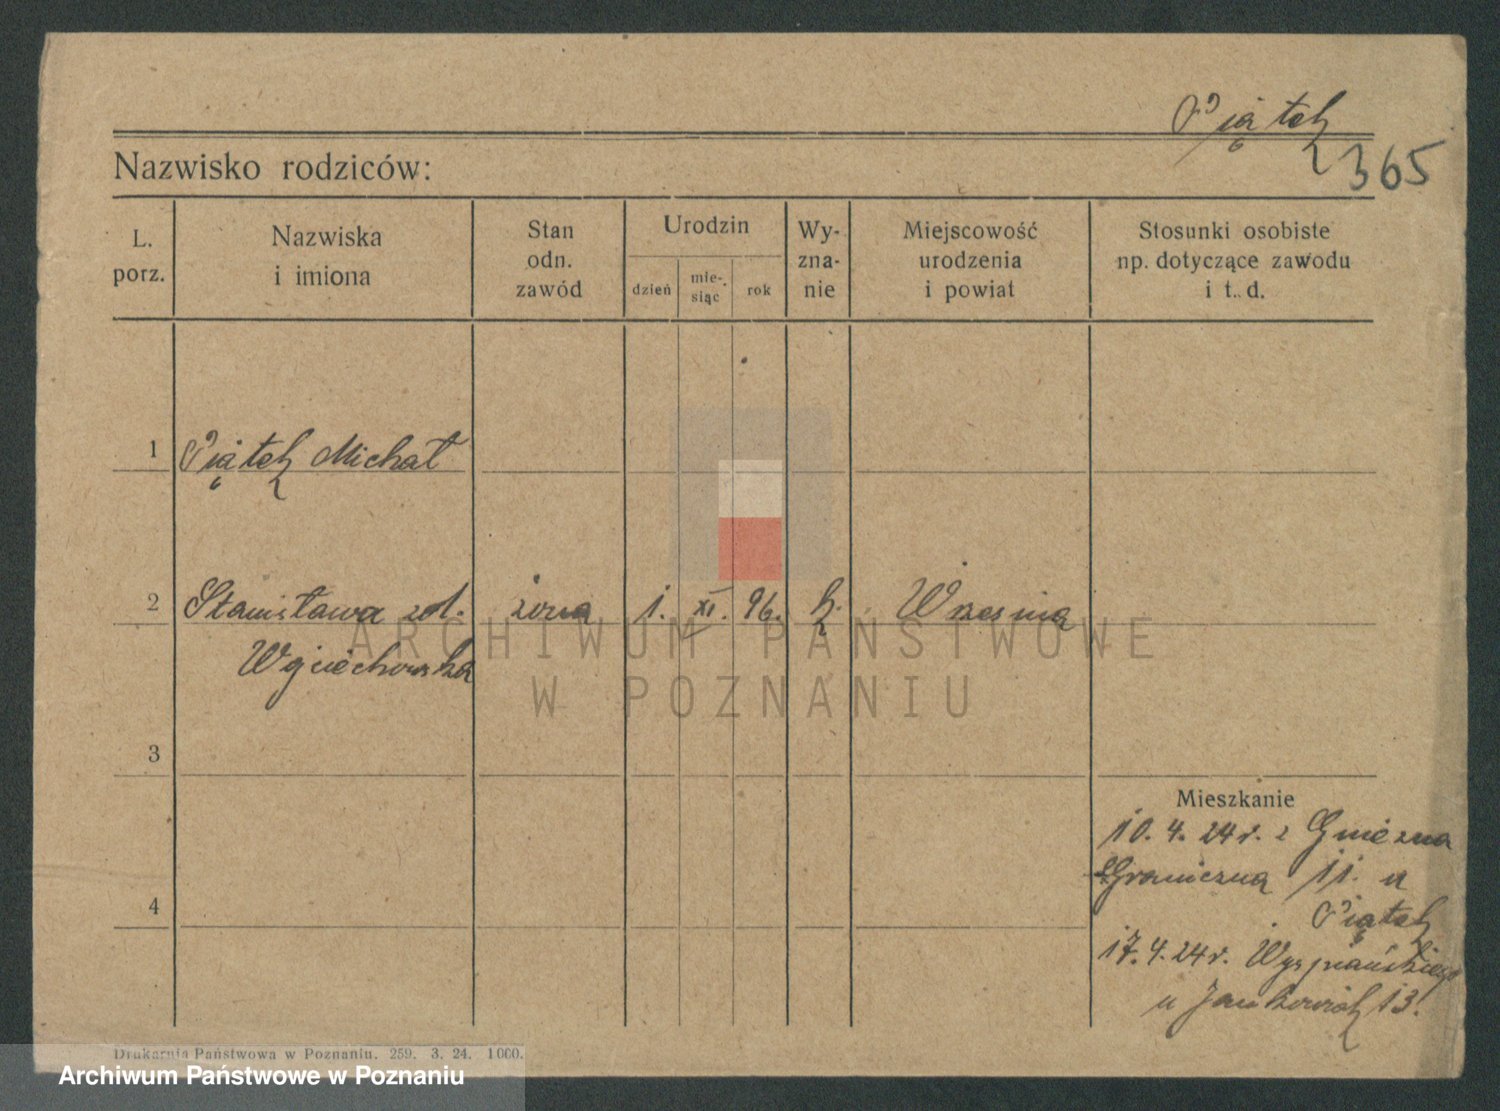 Piątek
365
Nazwisko rodziców:
L. porz.
Nazwiska i imiona
Stan odn. zawód
Urodzin
dzień
mie-siąc
rok
Wy-zna-nie
Miejscowość urodzenia i powiat
Stosunki osobiste np. dotyczące zawodu i t. d.
1 Piątek Michał
2 Stanisława żona 1. XI. 96. k. Września
Wojciechowska
3
Mieszkanie
10. 4. 24 r. z Gniezna
Graniczna 11. u
4
Piątek
17. 4. 24 r. Wyspiańskiego
u Jankowiak 13.
ARCHIWUM PAŃSTWOWE
W POZNANIU
Drukarnia Państwowa w Poznaniu. 259. 3. 24. 1000.
Archiwum Państwowe w Poznaniu